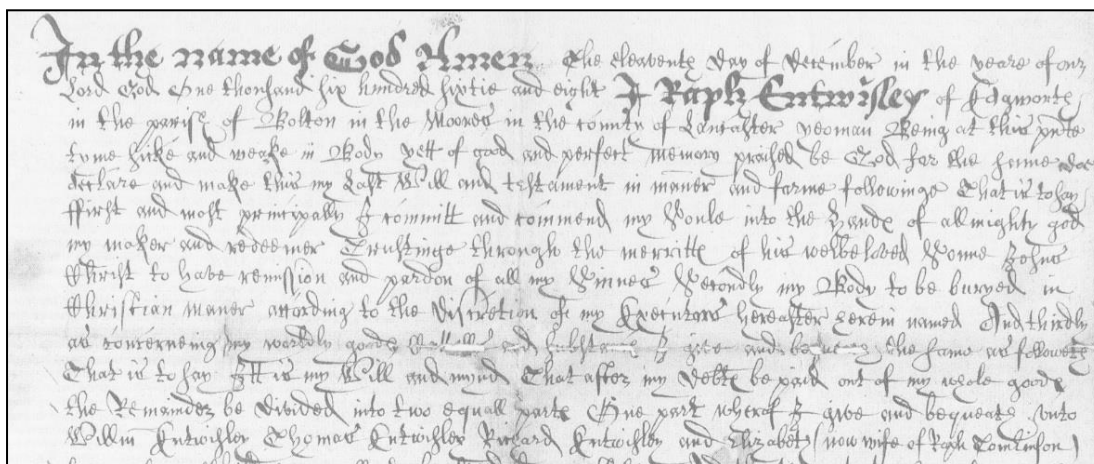 In the name of God Amen The eleaventh day of december in the yeare of our
Lord God One thousand six hundred sixtie and eight I Raph Entwisley of Edgworth
in the parish of Bolton in the Moores in the county of Lancaster yeoman Being at this pnte
tyme sicke and weake in Body yett of good and perfect memory praised be God for the same doe
declare and make this my Last Will and testament in maner and forme followinge That is to say
ffirst and most principally I committ and commend my Soule into the hands of allmighty god
my maker and redeemer Trustinge through the merritts of his welbeloved Sonne Jesus
Christ to have remission and pardon of all my Sinnes Secondly my Body to be buryed in
Christian maner according to the discretion of my Executors hereafter herein named And thirdly
as concerneing my worldly goods and substance I give and bequeath the same as followeth
That is to say Itt is my Will and mynd That after my debts be paid out of my whole goods
the Remainder be divided into two equall parts One part wherof I give and bequeath unto
Willm Entwichley Thomas Entwichley Richard Entwichley and Elizabeth (now wife of Raph Tomlinson)